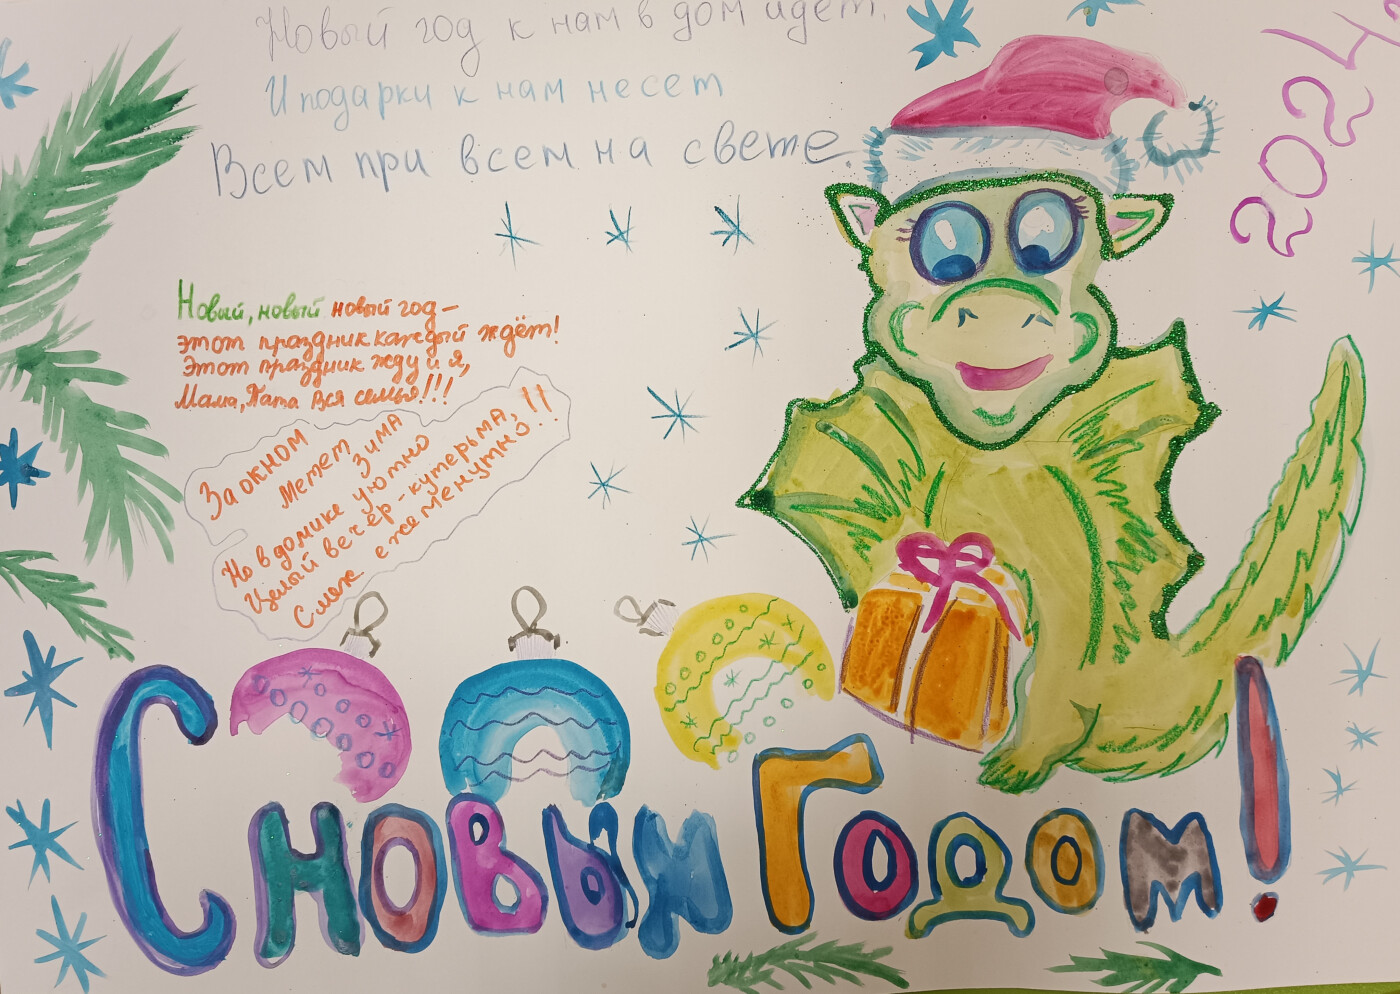 Новый год к нам в дом идет,
И подарки к нам несет
Всем при всем на свете
2024
Новый, новый новый год —
этот праздник каждый ждёт!
Этот праздник жду и я,
Мама, Папа Вся семья!!!
За окном
метет
зима
Но в домике уютно
Целый вечер - кутерьма,
Смех ежеминутно!!
С новым Годом!